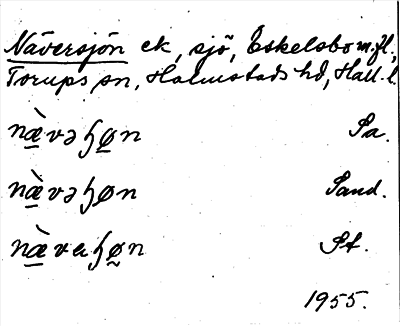 Näversjön ek, sjö, Eskelsbo m.fl.,
Torups sn, Halmstads hd, Hall. l.
næ̠̀vəɧø̠n Sa.
næ̠̀vəɧøn Sand.
næ̠̀vaɧø̠n St.
1955.